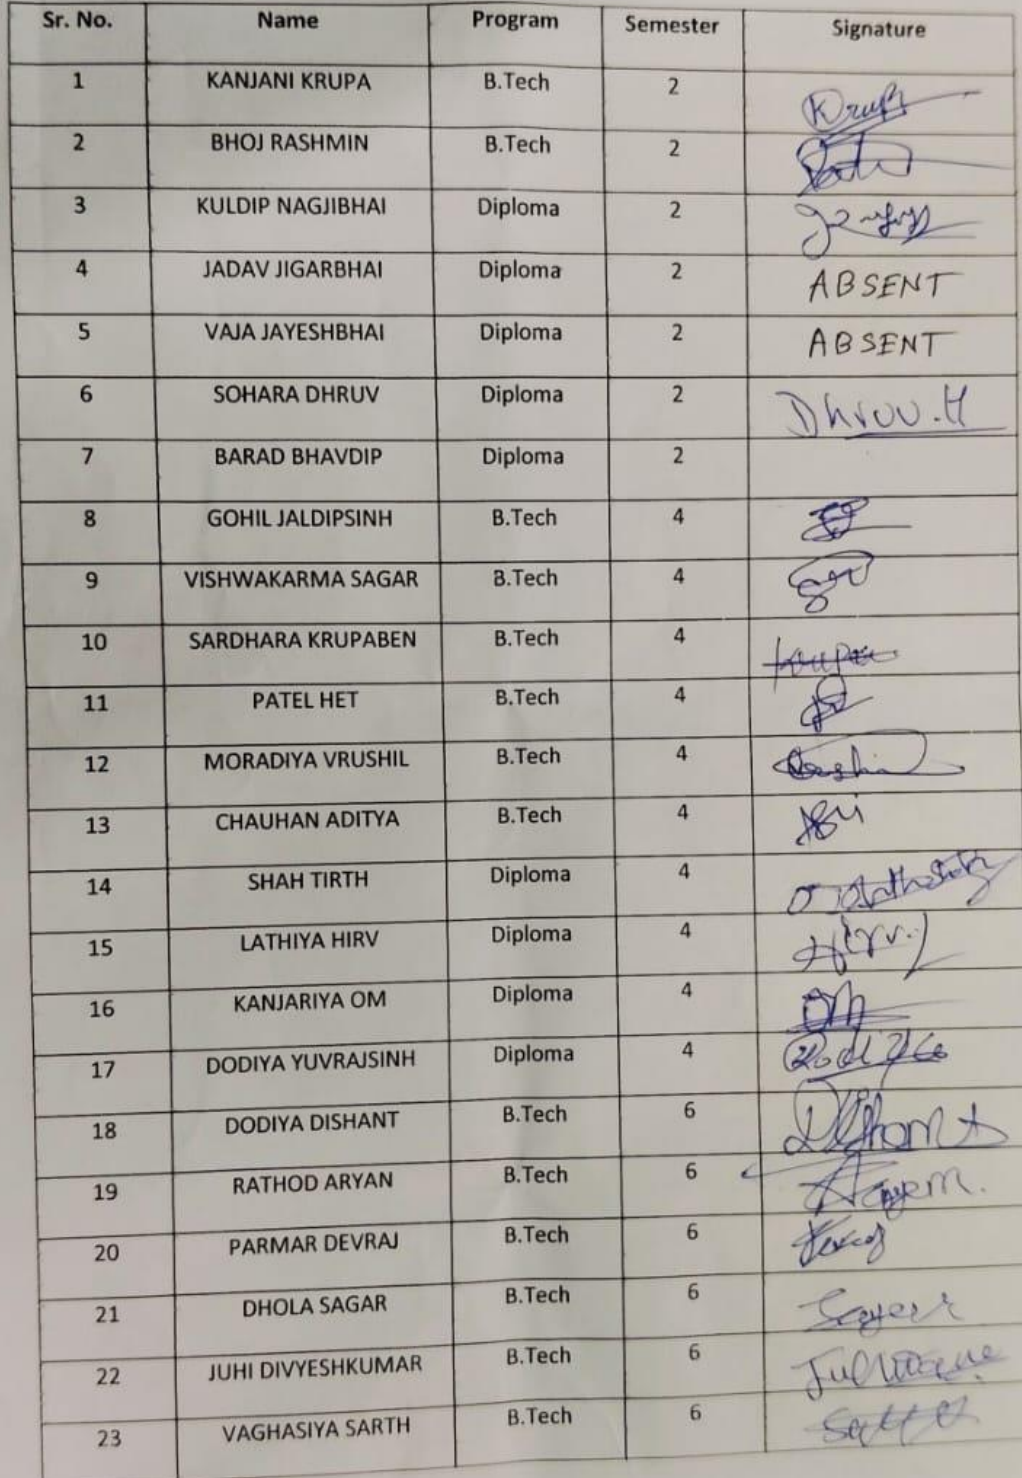 Sr. No. Name Program Semester Signature
1 KANJANI KRUPA B.Tech 2 Krupa
2 BHOJ RASHMIN B.Tech 2
3 KULDIP NAGJIBHAI Diploma 2
4 JADAV JIGARBHAI Diploma 2 ABSENT
5 VAJA JAYESHBHAI Diploma 2 ABSENT
6 SOHARA DHRUV Diploma 2 Dhruv.H
7 BARAD BHAVDIP Diploma 2
8 GOHIL JALDIPSINH B.Tech 4
9 VISHWAKARMA SAGAR B.Tech 4
10 SARDHARA KRUPABEN B.Tech 4
11 PATEL HET B.Tech 4
12 MORADIYA VRUSHIL B.Tech 4
13 CHAUHAN ADITYA B.Tech 4
14 SHAH TIRTH Diploma 4
15 LATHIYA HIRV Diploma 4
16 KANJARIYA OM Diploma 4
17 DODIYA YUVRAJSINH Diploma 4
18 DODIYA DISHANT B.Tech 6 Dishant
19 RATHOD ARYAN B.Tech 6
20 PARMAR DEVRAJ B.Tech 6
21 DHOLA SAGAR B.Tech 6
22 JUHI DIVYESHKUMAR B.Tech 6
23 VAGHASIYA SARTH B.Tech 6